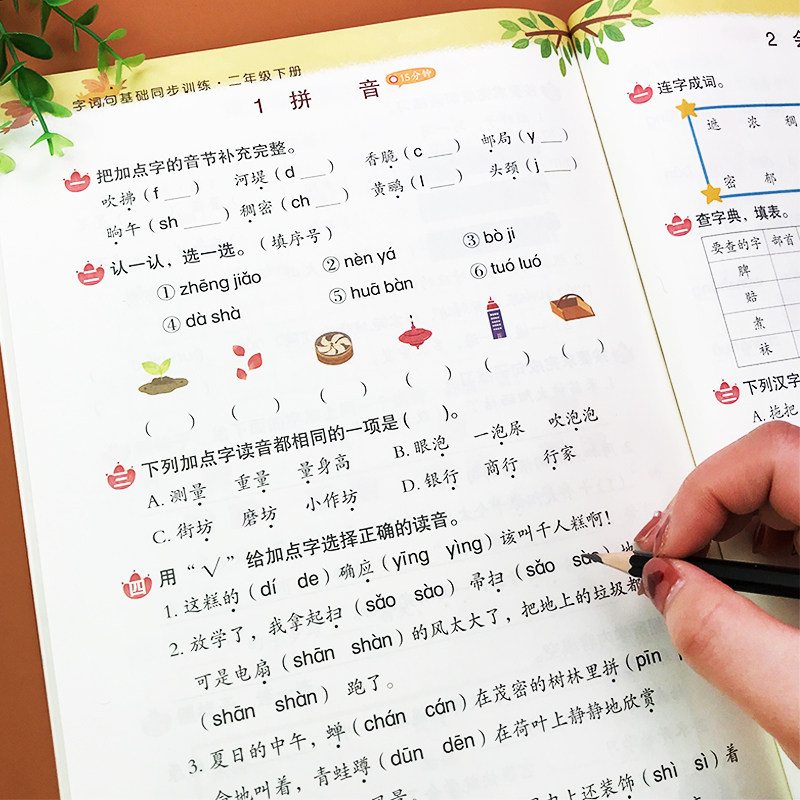 字词句基础同步训练·二年级下册
1 拼 音
15分钟
一 把加点字的音节补充完整。
吹拂(f ___) 河堤(d ___) 香脆(c ___) 邮局(y ___)
晌午(sh ___) 稠密(ch ___) 黄鹂(l ___) 头颈(j ___)
二 认一认，选一选。(填序号)
① zhēng jiǎo ② nèn yá ③ bò ji
④ dà shà ⑤ huā bàn ⑥ tuó luó
( ) ( ) ( ) ( ) ( ) ( )
三 下列加点字读音都相同的一项是( )。
A. 测量 重量 量身高 B. 眼泡 一泡尿 吹泡泡
C. 街坊 磨坊 小作坊 D. 银行 商行 行家
四 用“√”给加点字选择正确的读音。
1. 这糕的(dí de)确应(yīng yìng)该叫千人糕啊！
2. 放学了，我拿起扫(sǎo sào)帚扫(sǎo sào)地
可是电扇(shān shàn)的风太大了，把地上的垃圾都
(shān shàn)跑了。
3. 夏日的中午，蝉(chán cán)在茂密的树林里拼(pīn
地叫着，青蛙蹲(dūn dēn)在荷叶上静静地欣赏
上还装饰(shì sì)着
2
一 连字成词。
逃 浓 稠
密 郁
二 查字典，填表。
要查的字 部首
脾
赔
煮
袜
三 下列汉字
A. 拖把